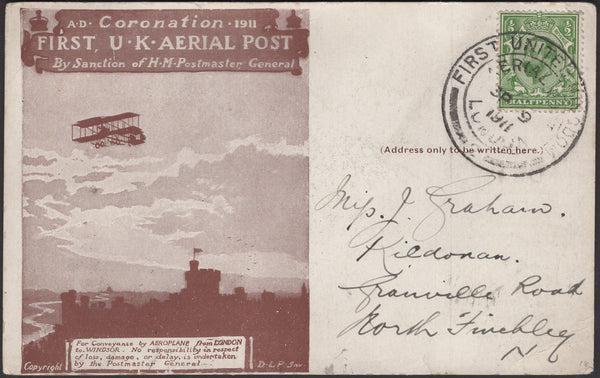 A·D· Coronation ·1911
FIRST U·K·AERIAL POST
By Sanction of H·M·Postmaster General
For Conveyance by AEROPLANE from LONDON
to WINDSOR. No responsibility in respect
of loss, damage, or delay, is undertaken
by the Postmaster General.
Copyright
D·L·P Inv.
HALFPENNY
FIRST UNITED
AERIAL
1911
LONDON
(Address only to be written here.)
Miss J. Graham.
Kildonan.
Granville Road
North Finchley
N